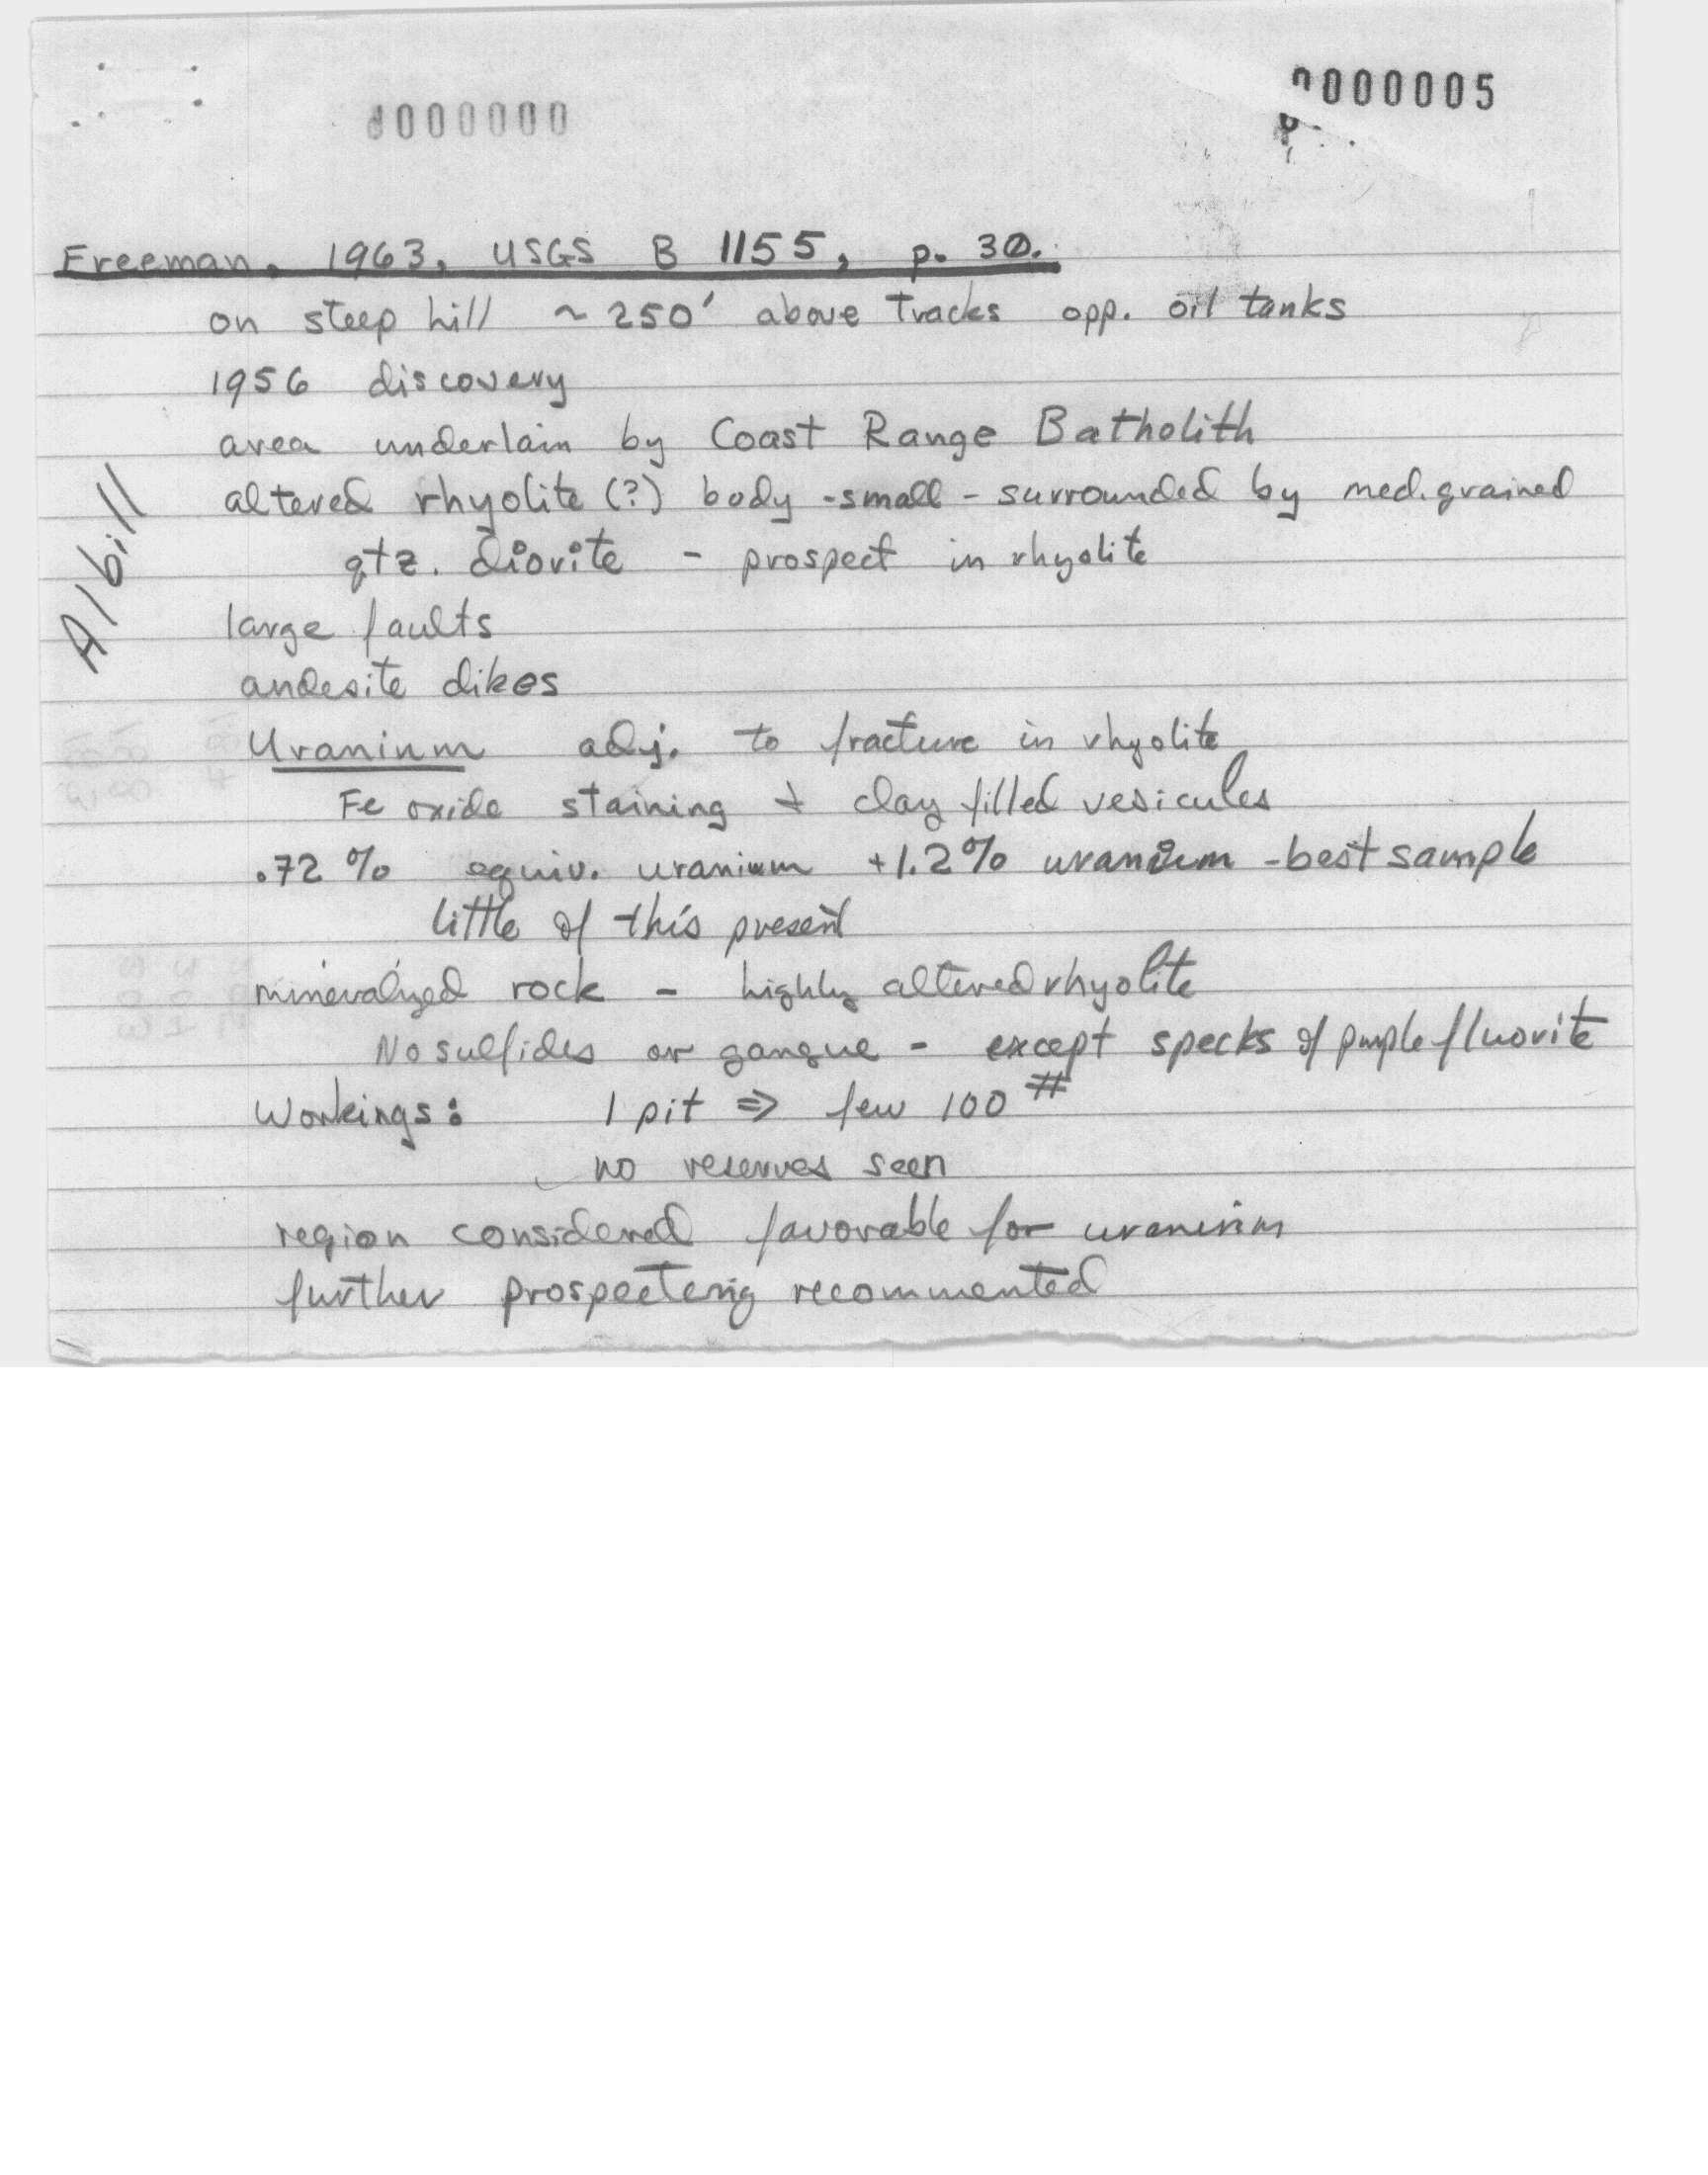 0000000
0000005
Freeman, 1963, USGS B 1155, p. 30.
on steep hill ~ 250' above tracks opp. oil tanks
1956 discovery
area underlain by Coast Range Batholith
Albill
altered rhyolite (?) body - small - surrounded by med. grained
qtz. diorite - prospect in rhyolite
large faults
andesite dikes
Uranium adj. to fracture in rhyolite
Fe oxide staining + clay filled vesicules
.72 % equiv. uranium + 1.2% uranium - best sample
little of this present
mineralized rock - highly altered rhyolite
No sulfides or gangue - except specks of purple fluorite
Workings: 1 pit ⇒ few 100 #
no reserves seen
region considered favorable for uranium
further prospecting recommented